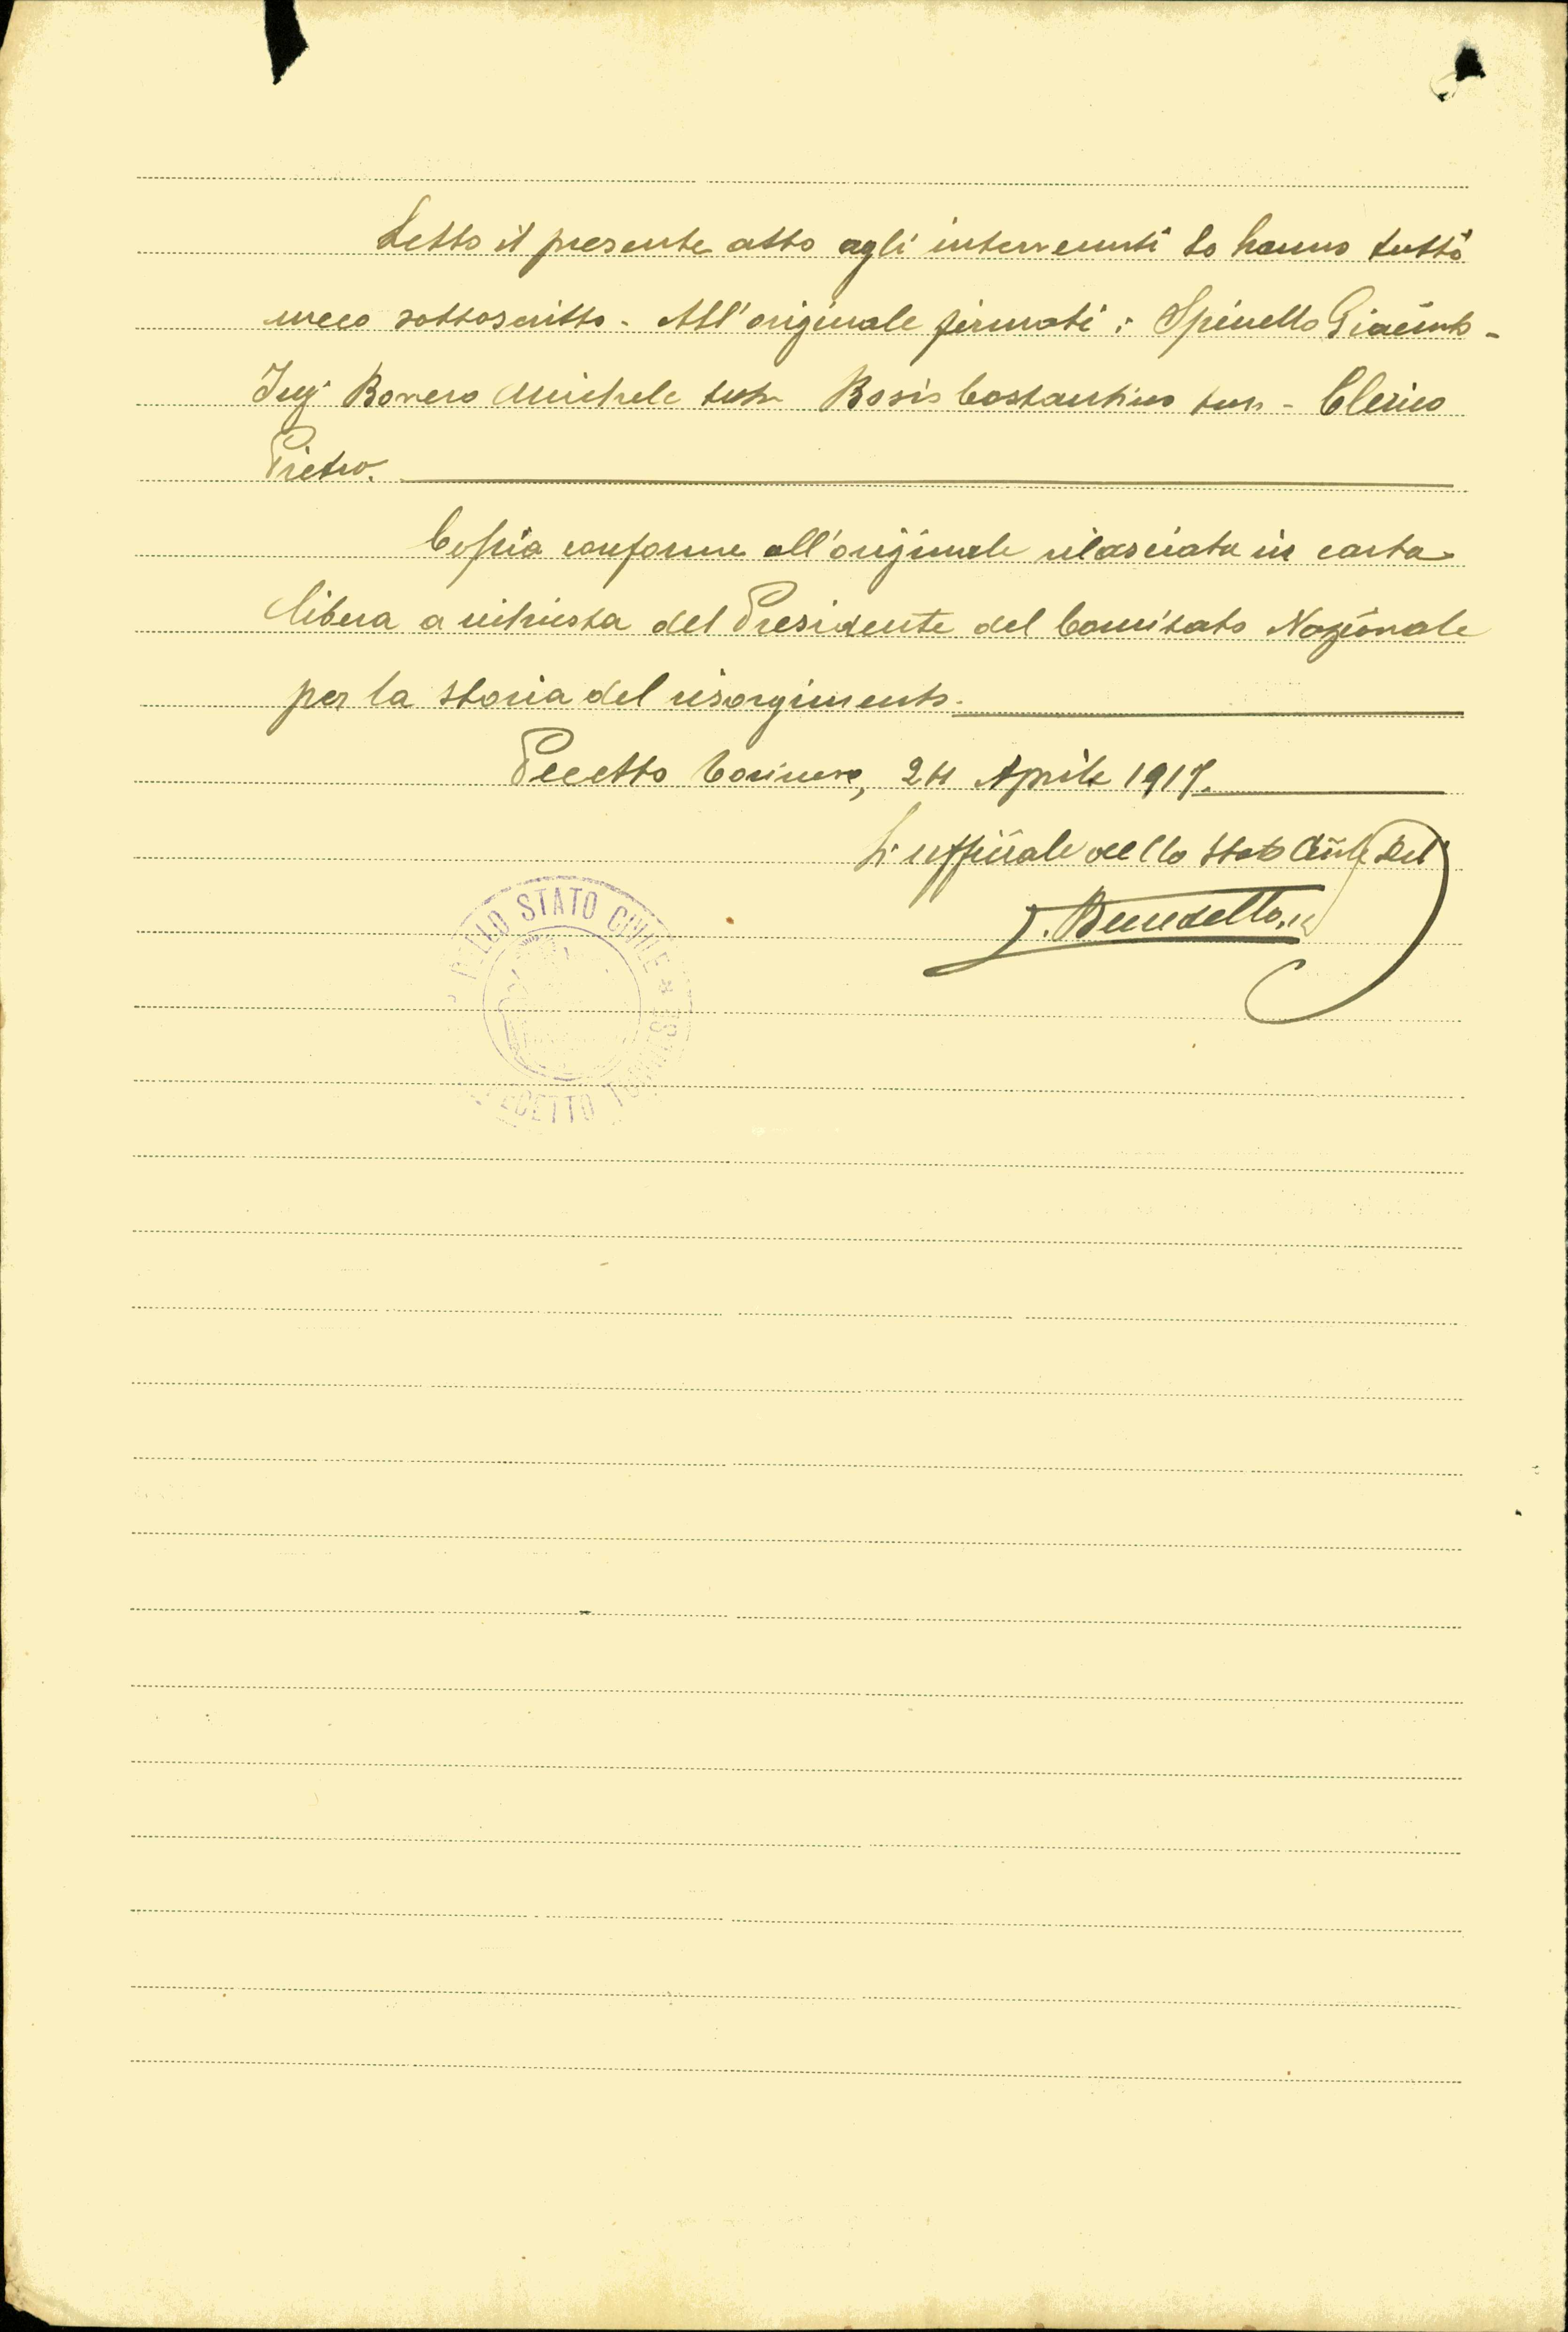 Letto il presente atto agli intervenuti lo hanno tutti
meco sottoscritto - All'originale firmati : Spinello Giacinto -
Ing. Borrero Michele test. Bosis Costantino test. - Clerico
Pietro.
Copia conforme all'originale rilasciata in carta
libera a richiesta del Presidente del Comitato Nazionale
per la storia del risorgimento.
Pecetto Torinese, 24 Aprile 1917.
L'uffiziale dello Stato Civile Del.
DELLO STATO CIVILE *
PECETTO TORINESE